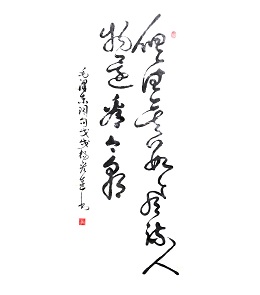 俱往矣数风流人
物还看今朝
毛泽东词句戊戌杨